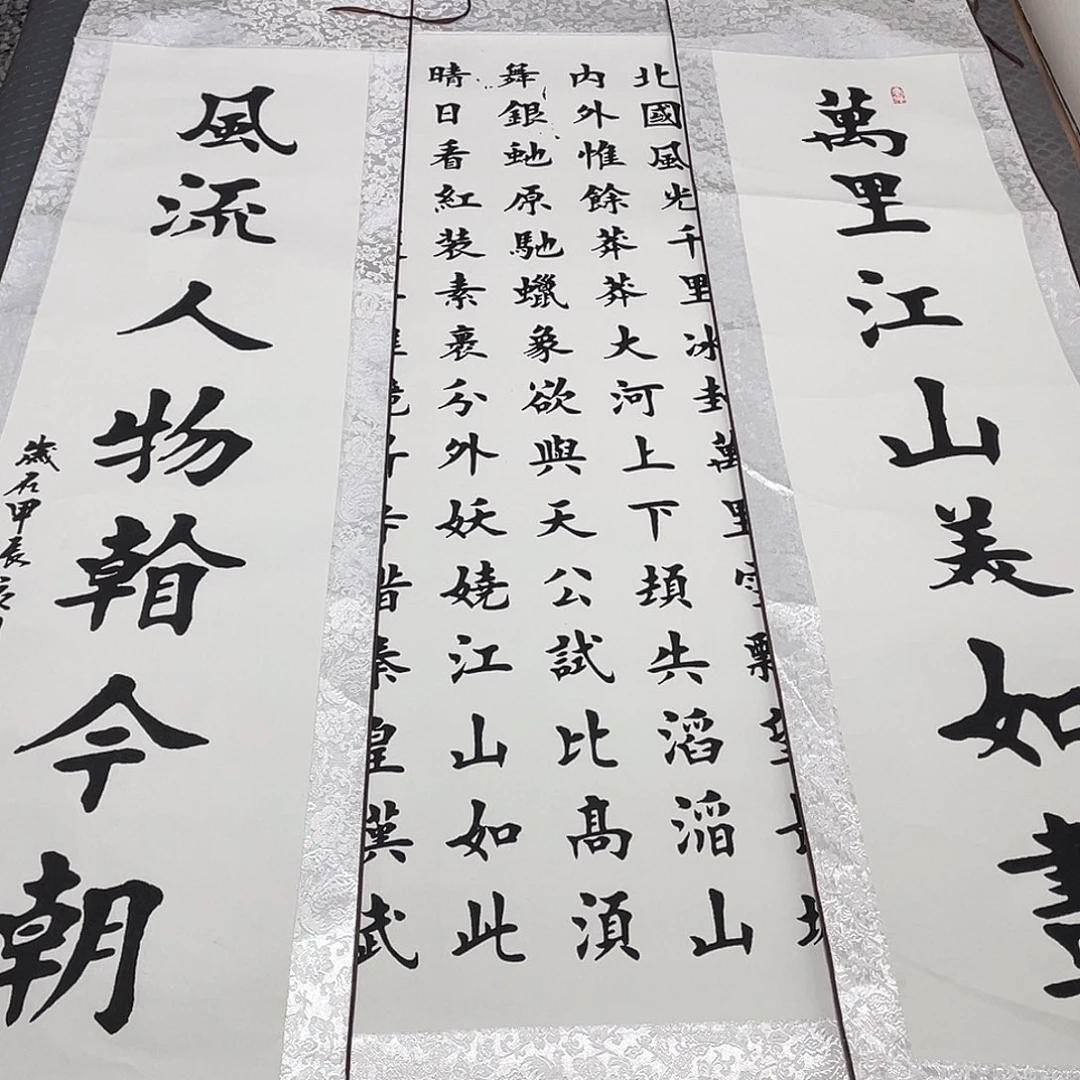 萬里江山美如畫
北國風光千里冰封萬里雪飄望長城
内外惟餘莽莽大河上下頓失滔滔山
舞銀虵原馳蠟象欲與天公試比髙湏
晴日看紅装素裹分外妖嬈江山如此
惜秦皇漢武
風流人物看今朝
歲在甲辰